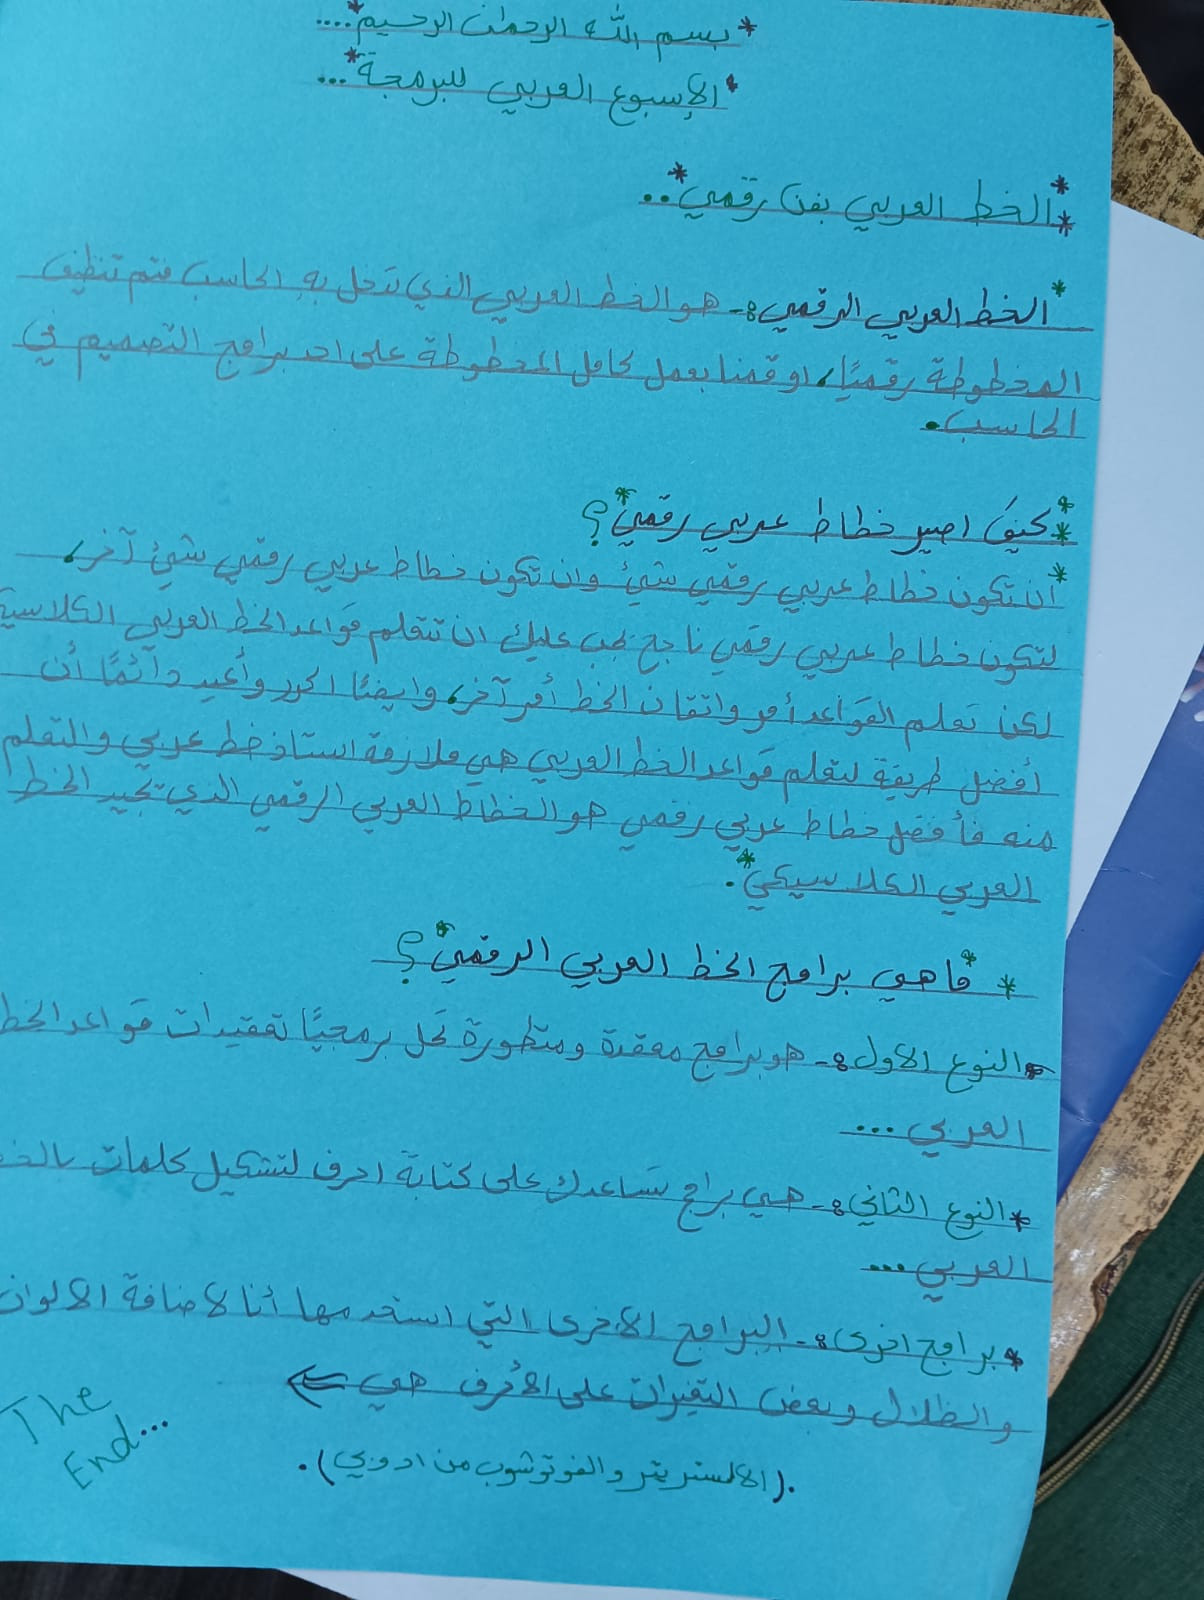 *بسم الله الرحمٰن الرحيم*....
*الإسبوع العربي للبرمجة*...
**الخط العربي بفن رقمي*..
*الخط العربي الرقمي:- هو الخط العربي الذي تدخل به الحاسب فتم تنظيف
المخطوطة رقميًا، او قمنا بعمل كامل المخطوطة على احد برامج التصميم في
الحاسب.
**كيف اصير خطاط عربي رقمي*؟
*أن تكون خطاط عربي رقمي شيئ وان تكون خطاط عربي رقمي شيئ آخر،
لتكون خطاط عربي رقمي ناجح يجب عليك ان تتعلم قواعد الخط العربي
لكن تعلم القواعد أمر واتقان الخط أمر آخر، وايضًا اكرر وأعيد دآئمًا أن
أفضل طريقة لتعلم قواعد الخط العربي هي ملازمة استاذ خط عربي والتعلم
منه فأفضل خطاط عربي رقمي هو الخطاط العربي الرقمي الذي يجيد الخط
العربي الكلاسيكي*.
* *ما هي برامج الخط العربي الرقمي*؟
*النوع الاول:- هو برامج معقدة ومتطورة تحل برمجيًا تعقيدات قواعد الخط
العربي...
*النوع الثاني:- هي برامج تساعدك على كتابة احرف لتشكيل كلمات بالخط
العربي...
*برامج اخرى:- البرامج الاخرى التي استخدمها أنا لاضافة الالوان
والظلال وبعض التغيرات على الأحرف هي ⇐
.(الالستريتر والفوتوشوب من ادوبي).
The
End...